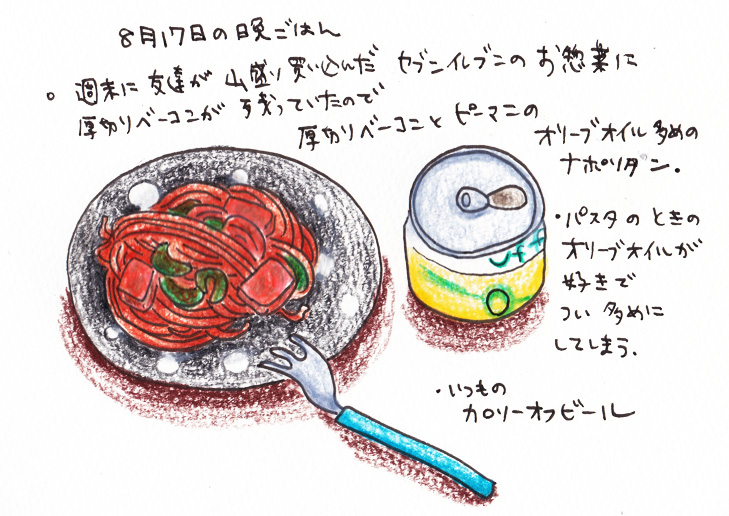 8月17日の晩ごはん
。週末に友達が山盛り買い込んだ セブンイレブンのお惣菜に
厚切りベーコンが残っていたので
厚切りベーコンとピーマンの
オリーブオイル多めの
ナポリタン.
・パスタのときの
オリーブオイルが
好きで
つい多めに
してしまう.
・いつもの
カロリーオフビール